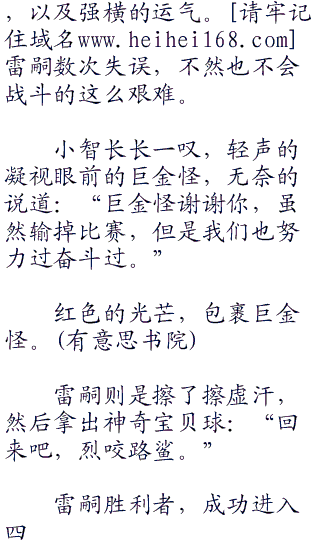 ，以及强横的运气。[请牢记
住域名www.heihei168.com]
雷嗣数次失误，不然也不会
战斗的这么艰难。
小智长长一叹，轻声的
凝视眼前的巨金怪，无奈的
说道：“巨金怪谢谢你，虽
然输掉比赛，但是我们也努
力过奋斗过。”
红色的光芒，包裹巨金
怪。(有意思书院)
雷嗣则是擦了擦虚汗，
然后拿出神奇宝贝球：“回
来吧，烈咬路鲨。”
雷嗣胜利者，成功进入
四